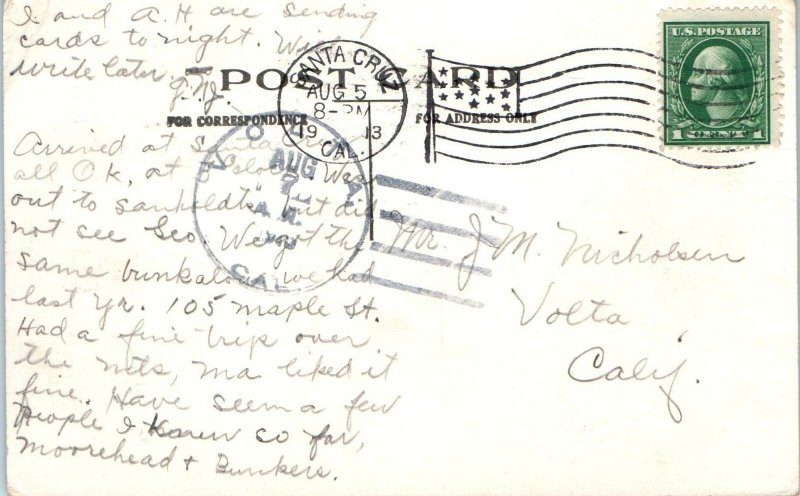 I and A.H. are sending
cards to night. Will
write later
J.N.
POST CARD
FOR CORRESPONDENCE
FOR ADDRESS ONLY
SANTA CRUZ
AUG 5
8-PM
19 13
CAL.
U.S. POSTAGE
1 CENT 1
VOLTA
AUG
7
A.M.
CAL
Arrived at Santa Cruz
all Ok, at 5 oclock. Was
out to but did
not see Geo. We got the
same bunkalow we had
last yr. 105 maple St.
Had a fine trip over
the mts, ma liked it
fine. Have seem a few
People I know so far,
Moorehead + Bunkers.
Mr. J. M. Nicholsen
Volta
Calif.